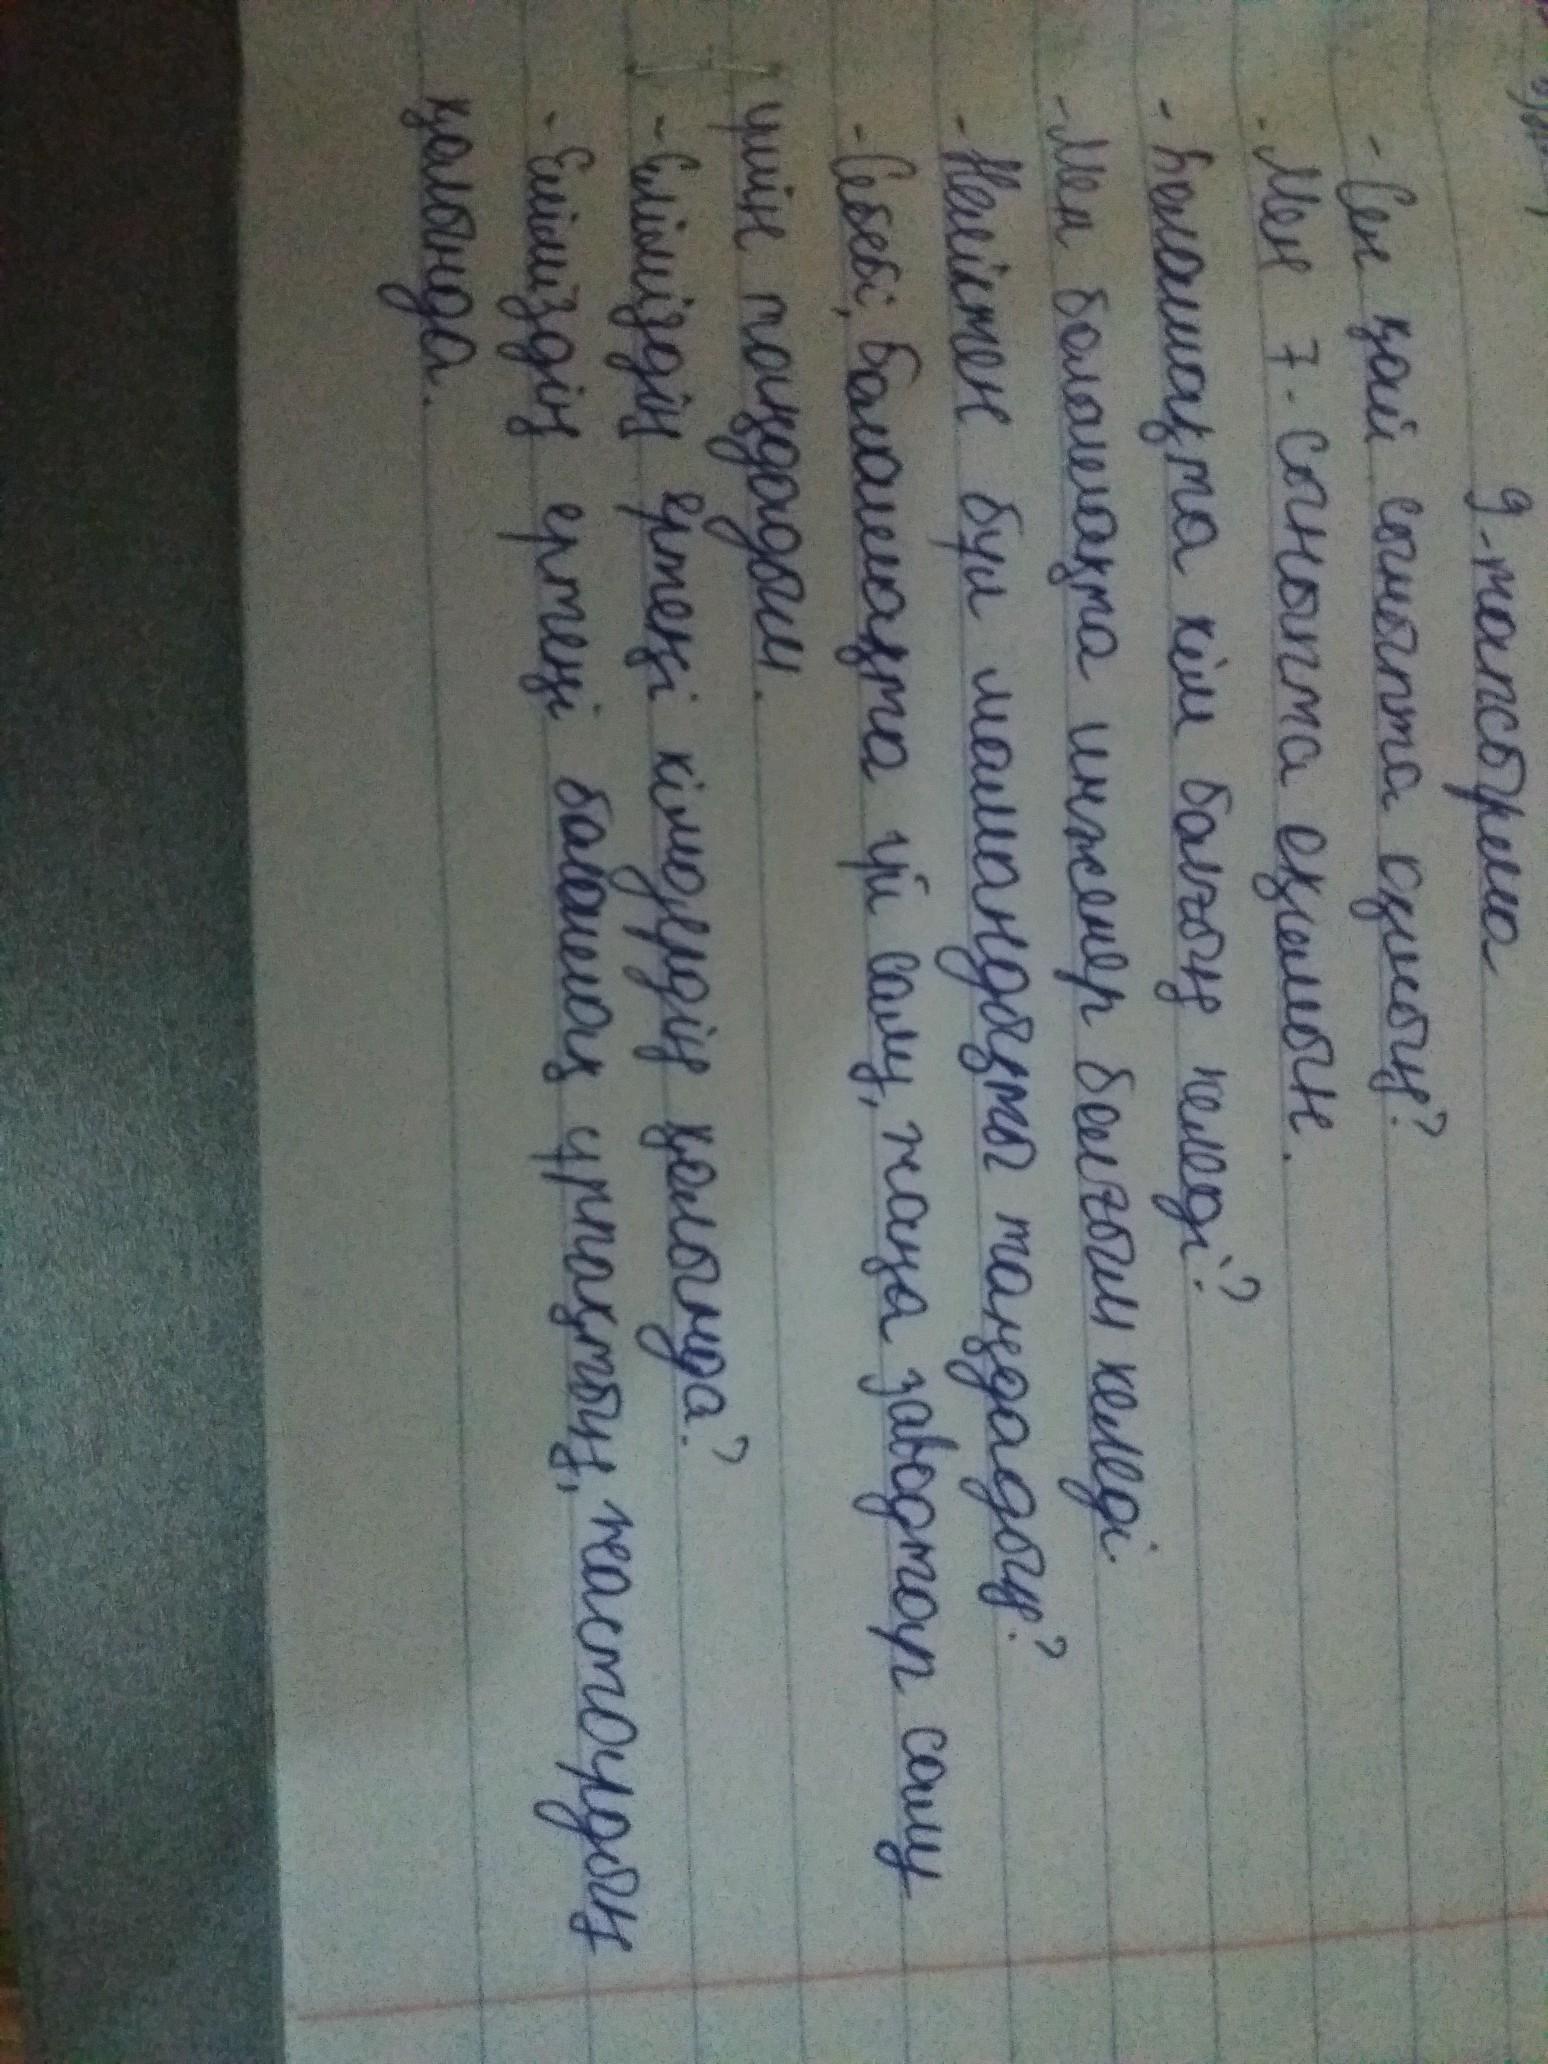 9-тапсырма
- Сен қай сыныпта оқисың?
- Мен 7-сыныпта оқимын.
- Болашақта кім болғың келеді?
- Мен болашақта инженер болғым келеді
- Неліктен бұл мамандықты таңдадың?
- Себебі, болашақта үй салу, жаңа заводтар салу
үшін таңдадым.
- Еліміздің ертеңі кімдердің қолында?
- Еліміздің ертеңі болашақ ұрпақтың, жастардың
қолында.